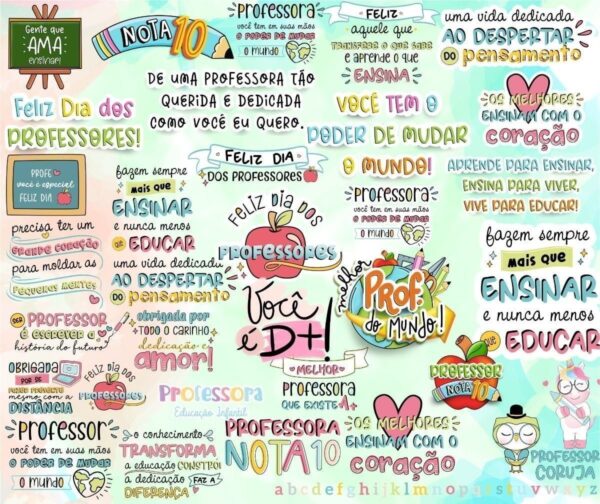 Gente que
AMA
ensinar!
NOTA 10
PROFESSORA
você tem em suas mãos
o PODER DE MUDAR
o MUNDO!
FELIZ
aquele que
TRANSFERE O QUE SABE
e aprende o que
ENSINA
uma vida dedicada
AO DESPERTAR
DO pensamento
DE UMA PROFESSORA TÃO
QUERIDA E DEDICADA
COMO VOCÊ EU QUERO.
FELIZ DIA DOS
PROFESSORES!
VOCÊ TEM O
PODER DE MUDAR
O MUNDO!
OS MELHORES
ENSINAM COM O
coração
PROFE
VOCÊ É ESPECIAL
FELIZ DIA
fazem sempre
MAIS QUE
ENSINAR
e nunca menos
QUE
EDUCAR
FELIZ DIA
DOS PROFESSORES
PROFESSORA
você tem em suas mãos
o PODER DE MUDAR
o MUNDO!
APRENDE PARA ENSINAR,
ENSINA PARA VIVER,
VIVE PARA EDUCAR!
precisa ter um
GRANDE CORAÇÃO
para moldar as
PEQUENAS MENTES
FELIZ DIA DOS
PROFESSORES
uma vida dedicada
AO DESPERTAR
DO pensamento
melhor
PROF.
do MUNDO!
fazem sempre
MAIS QUE
ENSINAR
e nunca menos
QUE
EDUCAR
SER PROFESSOR
É ESCREVER A
história do futuro
obrigada por
TODO O CARINHO
dedicação e
amor!
Você
é D+!
OBRIGADA
POR SE
mesmo com a
DISTÂNCIA
FELIZ DIA DOS
PROFESSORES
PROFESSORA
Educação Infantil
MELHOR
PROFESSORA
QUE EXISTE
PROFESSOR
NOTA 10
PROFESSOR
você tem em suas mãos
o PODER DE MUDAR
o MUNDO!
o conhecimento
TRANSFORMA
a educação CONSTRÓI
a dedicação FAZ A
DIFERENÇA
PROFESSORA
NOTA 10
OS MELHORES
ENSINAM COM O
coração
PROFESSOR
CORUJA
abcdefghijklmnopqrstuvwxyz